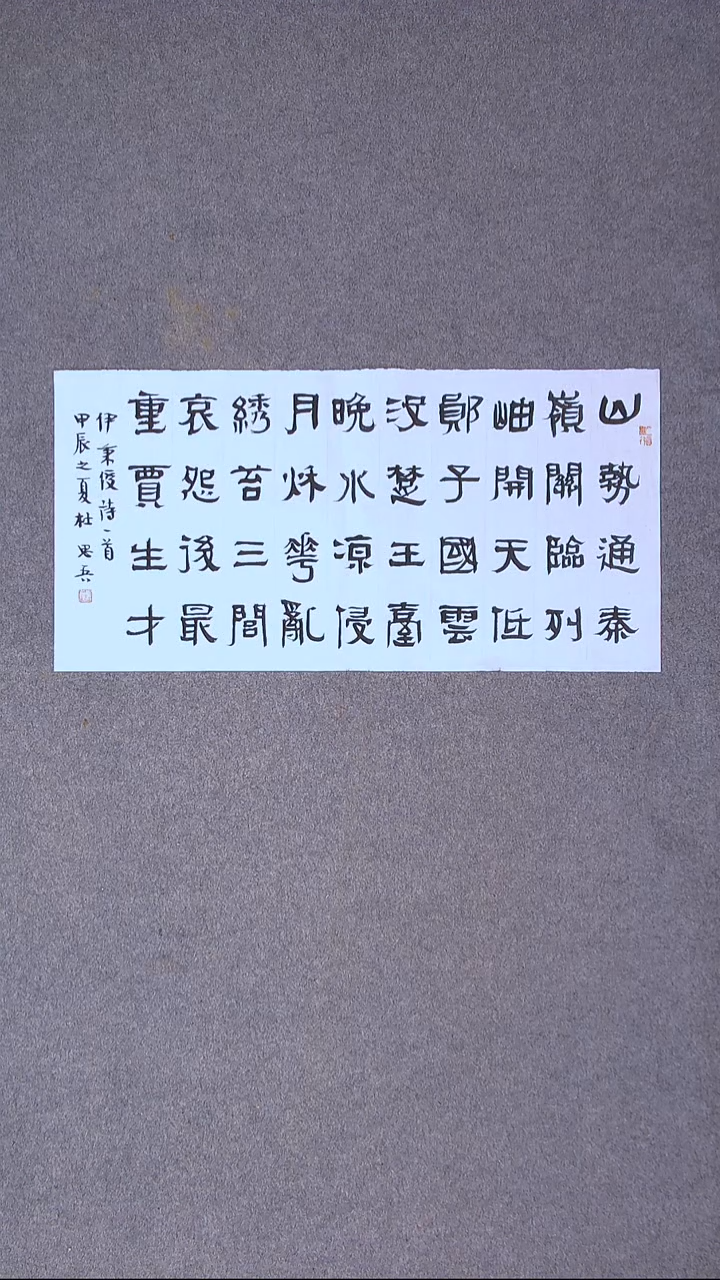 山勢通秦
嶺關臨列
岫開天低
鄖子國雲
沒楚王臺
晚水凉侵
月秌華亂
綉苔三閭
哀怨後最
重賈生才
伊秉綬詩一首
甲辰之夏杜思兵